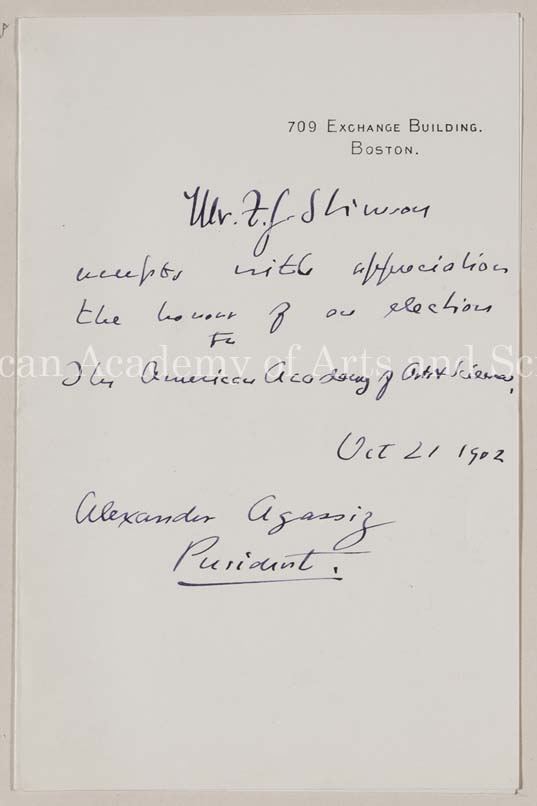 709 EXCHANGE BUILDING.
BOSTON.
Mr. F. J. Stimson
accepts with appreciation
the honour of an election
to
The American Academy of Arts & Sciences.
can Academy of Arts and Sci
Oct 21 1902
Alexander Agassiz
President.